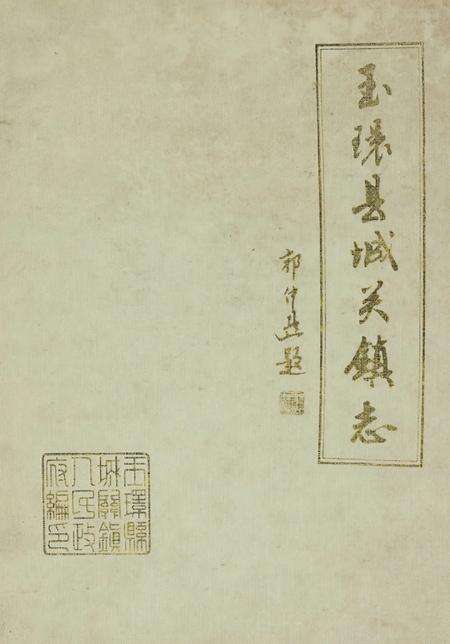 玉環县城关鎮志
郭仲選題
玉環縣
城關鎮
人民政
府編印